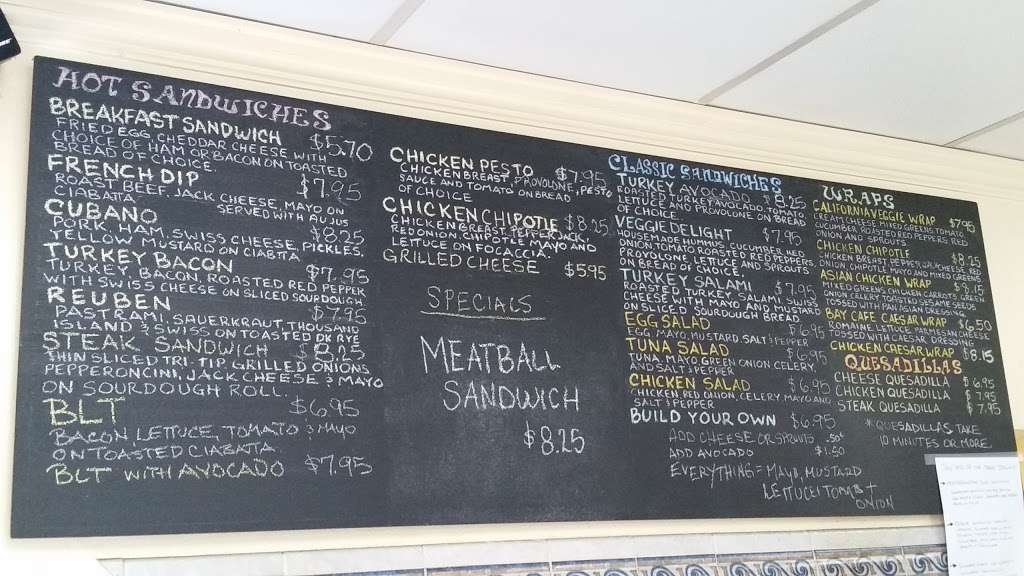 HOT SANDWICHES
BREAKFAST SANDWICH $5.70
FRIED EGG, CHEDDAR CHEESE WITH
CHOICE OF HAM OR BACON ON TOASTED
BREAD OF CHOICE.
FRENCH DIP $7.95
ROAST BEEF, JACK CHEESE, MAYO ON
CIABATTA SERVED WITH AU JUS
CUBANO $8.25
PORK, HAM, SWISS CHEESE, PICKLES,
YELLOW MUSTARD ON CIABTA
TURKEY BACON $7.95
TURKEY, BACON, ROASTED RED PEPPER
WITH SWISS CHEESE ON SLICED SOURDOUGH
REUBEN $7.95
PASTRAMI, SAUERKRAUT, THOUSAND
ISLAND & SWISS ON TOASTED DK RYE
STEAK SANDWICH $8.25
THIN SLICED TRI-TIP, GRILLED ONIONS,
PEPPERONCINI, JACK CHEESE & MAYO
ON SOURDOUGH ROLL.
BLT $6.95
BACON LETTUCE, TOMATO & MAYO
ON TOASTED CIABATTA
BLT WITH AVOCADO $7.95
CHICKEN PESTO $7.95
CHICKEN BREAST, PROVOLONE, PESTO
SAUCE AND TOMATO ON BREAD
OF CHOICE
CHICKEN CHIPOTLE $8.25
CHICKEN BREAST, PEPPERJACK,
RED ONION, CHIPOTLE MAYO AND
LETTUCE ON FOCACCIA.
GRILLED CHEESE $5.95
SPECIALS
MEATBALL
SANDWICH
$8.25
CLASSIC SANDWICHES
TURKEY AVOCADO $8.25
ROASTED TURKEY, AVOCADO, TOMATO
LETTUCE AND PROVOLONE ON BREAD
OF CHOICE.
VEGGIE DELIGHT $7.95
HOUSE MADE HUMMUS, CUCUMBER, RED
ONION, TOMATO, ROASTED RED PEPPERS
PROVOLONE, LETTUCE AND SPROUTS
ON BREAD OF CHOICE.
TURKEY SALAMI $7.95
ROASTED TURKEY, SALAMI, SWISS
CHEESE WITH MAYO AND MUSTARD
ON SLICED SOURDOUGH BREAD
EGG SALAD $6.95
EGG, MAYO, MUSTARD SALT & PEPPER
TUNA SALAD $6.95
TUNA, MAYO, GREEN ONION, CELERY,
AND SALT & PEPPER
CHICKEN SALAD $6.95
CHICKEN, RED ONION, CELERY, MAYO AND
SALT & PEPPER
BUILD YOUR OWN $6.95
ADD CHEESE OR SPROUTS .50¢
ADD AVOCADO $1.50
EVERYTHING = MAYO, MUSTARD
LETTUCE, TOMATO +
ONION
WRAPS
CALIFORNIA VEGGIE WRAP $7.95
CREAM CHEESE, MIXED GREENS, TOMATO,
CUCUMBER, ROASTED RED PEPPERS, RED
ONION AND SPROUTS
CHICKEN CHIPOTLE $8.25
CHICKEN BREAST, PEPPERJACK CHEESE, RED
ONION, CHIPOTLE MAYO AND MIXED GREENS
ASIAN CHICKEN WRAP $8.15
MIXED GREENS, CHICKEN, CARROTS, GREEN
ONION, CELERY, TOASTED SESAME SEEDS
TOSSED WITH ASIAN DRESSING
BAY CAFE CAESAR WRAP $6.50
ROMAINE LETTUCE, PARMESAN
CHEESE WITH CAESAR DRESSING
CHICKEN CAESAR WRAP $8.15
QUESADILLAS
CHEESE QUESADILLA $6.95
CHICKEN QUESADILLA $7.95
STEAK QUESADILLA $7.95
*QUESADILLAS TAKE
10 MINUTES OR MORE